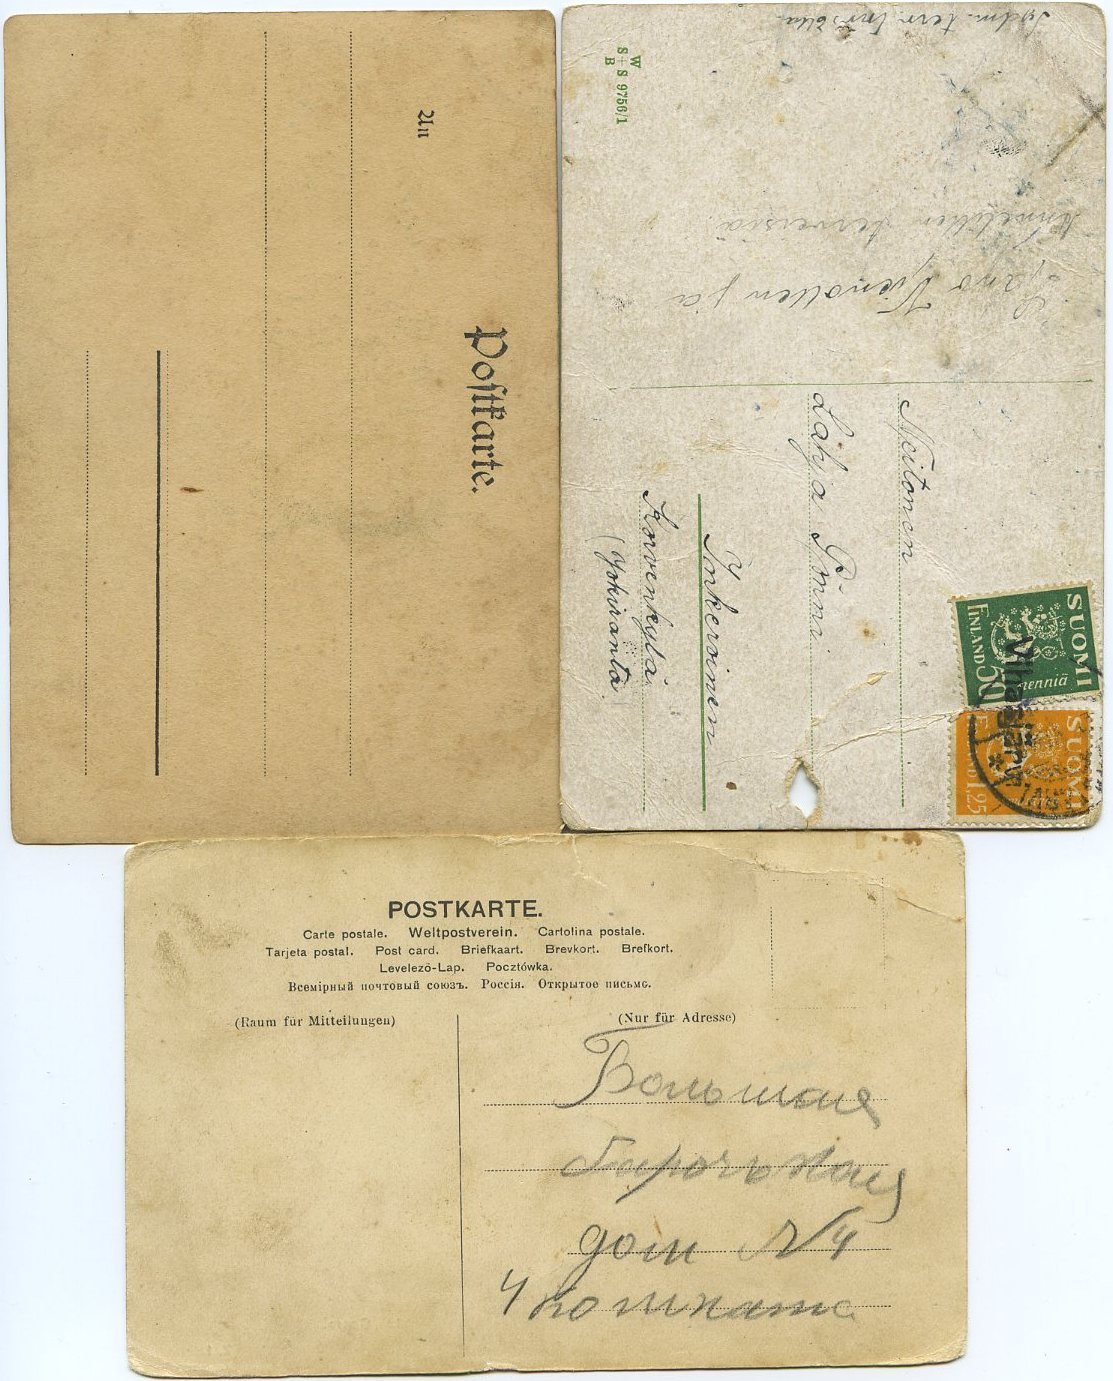 Postkarte.
An
W
S+S 9756/1
B
Sydm. terv.
terveisiä
ja
Neitonen
Lahja
Inkeroinen
Korvenkylä
(Jokiranta)
SUOMI
50
penniä
FINLAND
SUOMI
1.25
POSTKARTE.
Carte postale. Weltpostverein. Cartolina postale.
Tarjeta postal. Post card. Briefkaart. Brevkort. Brefkort.
Levelező-Lap. Pocztówka.
Всемірный почтовый союзъ. Россія. Открытое письмо.
(Raum für Mitteilungen)
(Nur für Adresse)
Большая
дом N4
4 комната